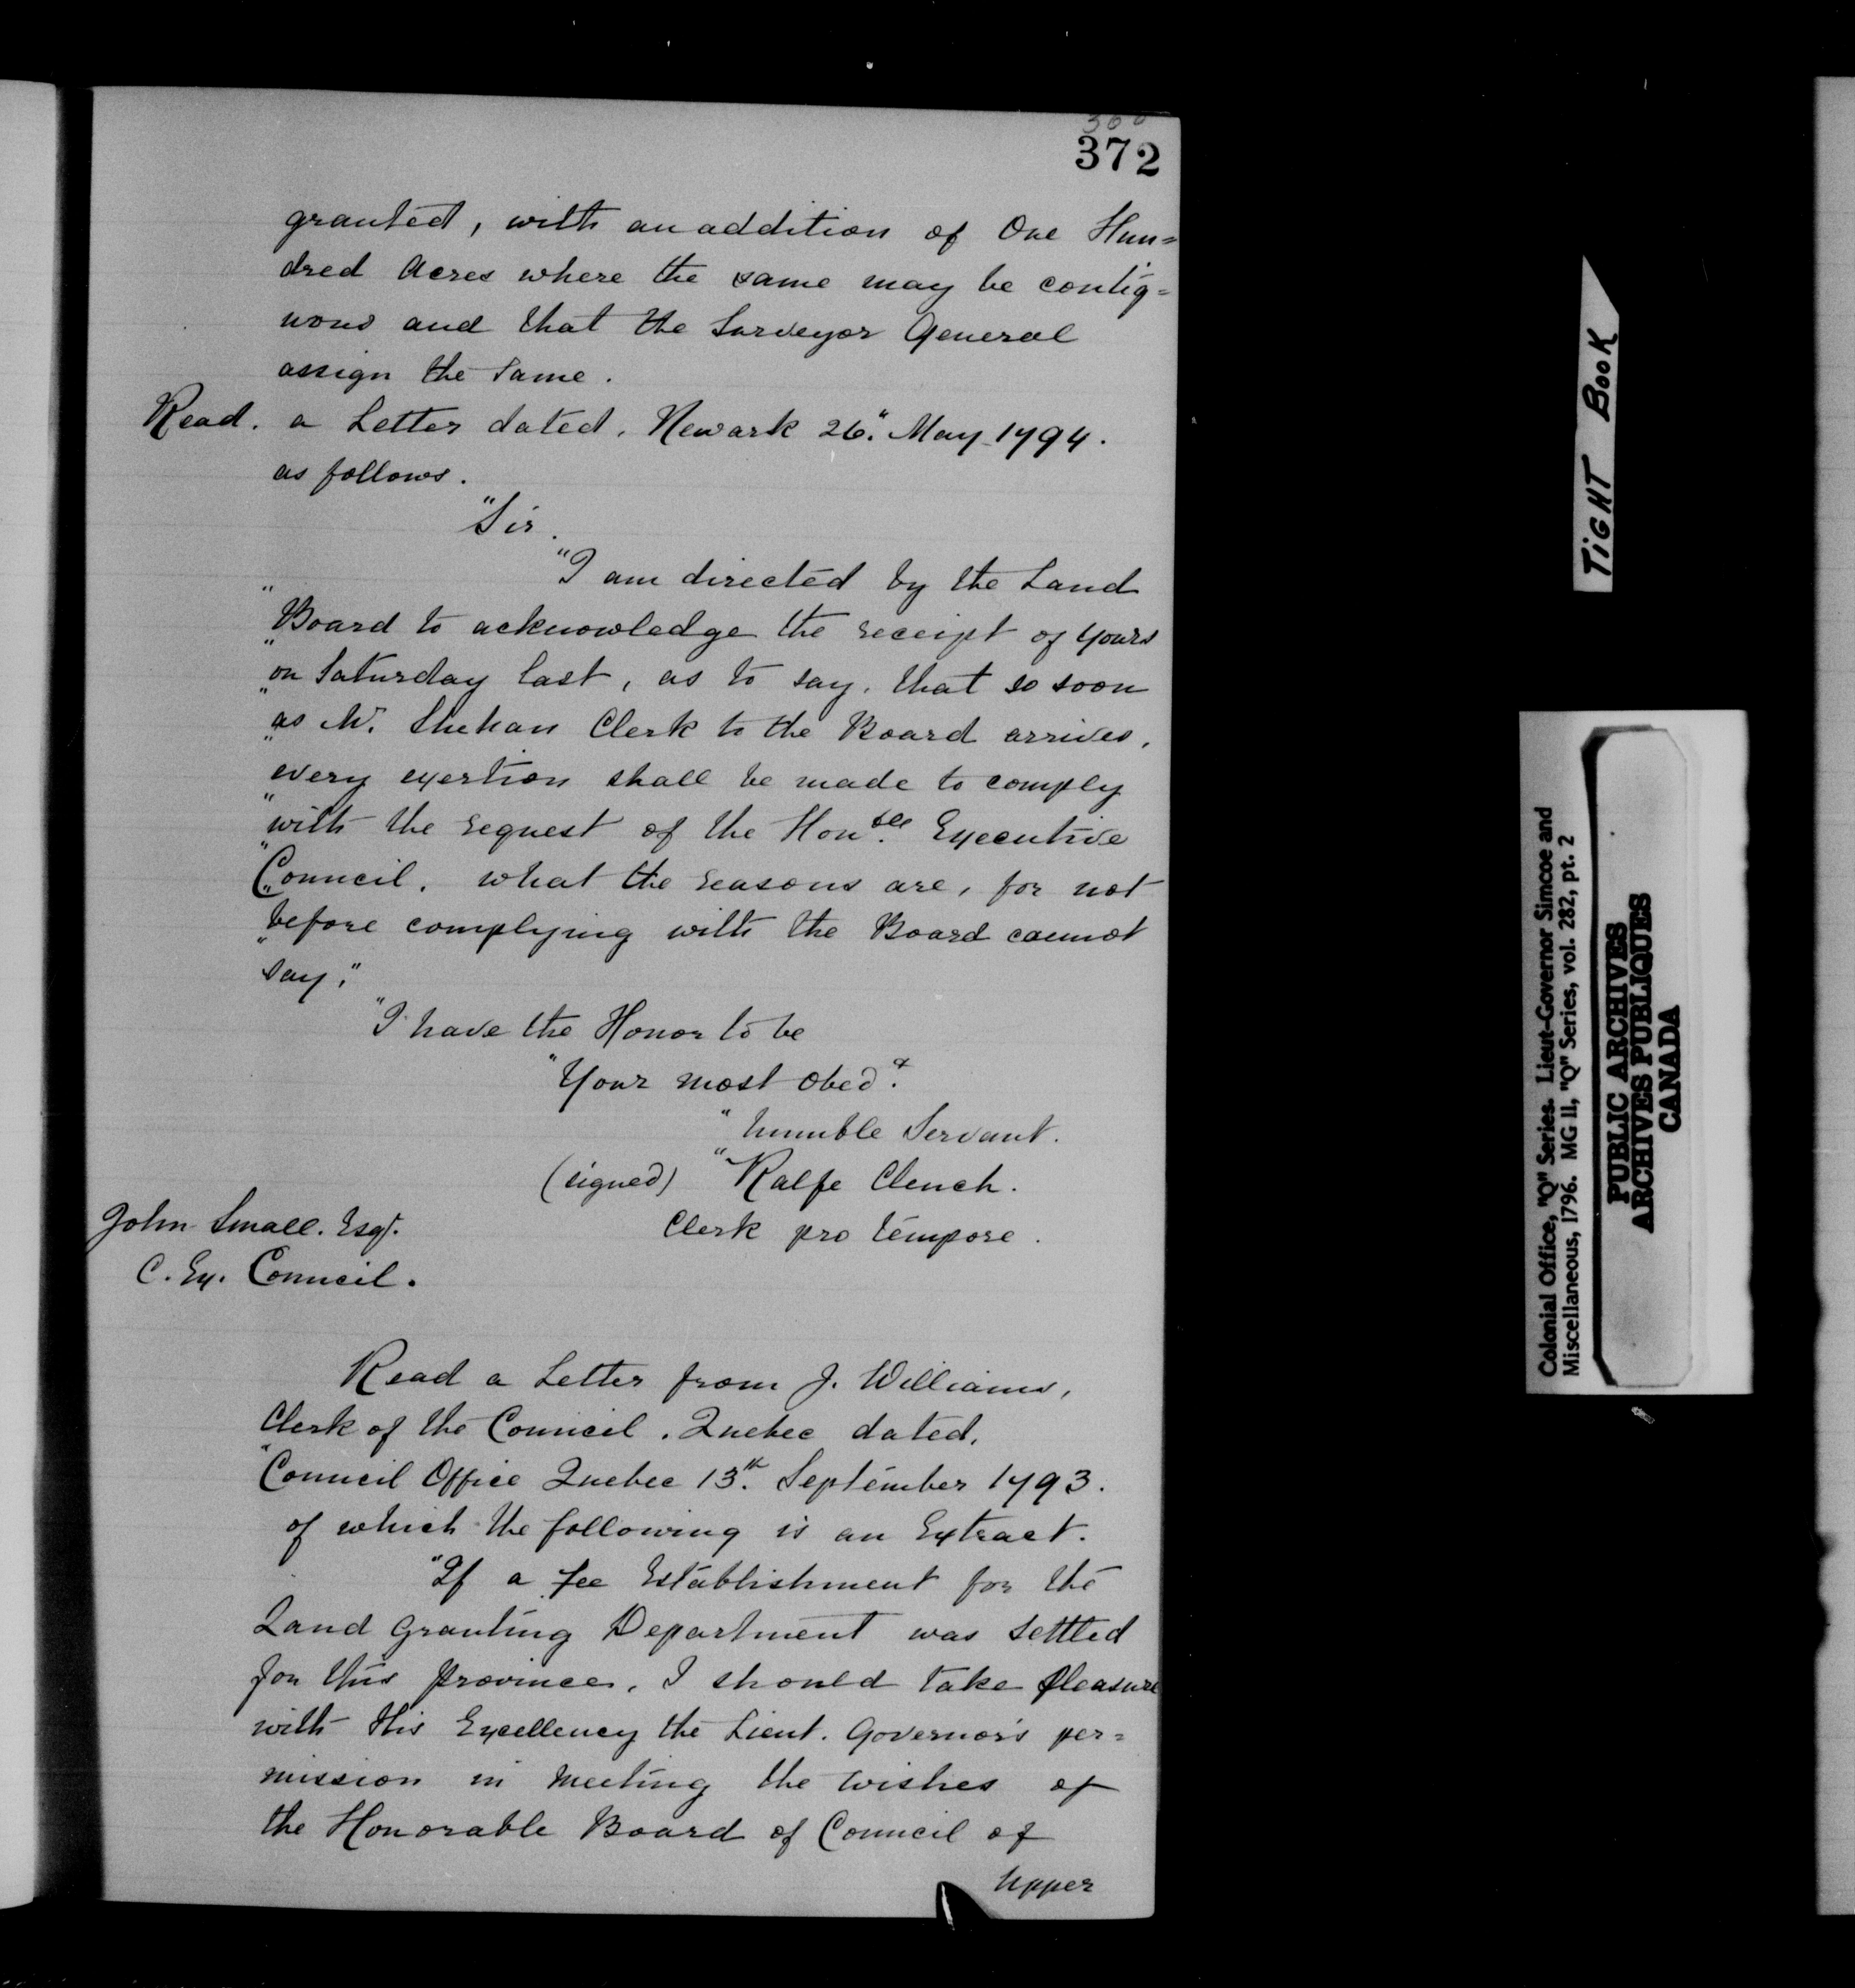 372
granted, with an addition of One Hun=
dred Acres where the same may be contig=
uous and that the Surveyor General
assign the Same.
Read. a Letter dated. Newark 26." May 1794.
as follows.
"Sir.
"I am directed by the Land
"Board to acknowledge the receipt of yours
"on Saturday last, as to say, that so soon
"as Mr. Shehan Clerk to the Board arrives,
"every exertion shall be made to comply
"with the request of the Honble. Executive
"Council. what the reasons are, for not
"before complying with the Board cannot
"say."
"I have the Honor to be
"Your most obedt.
"humble Servant.
(signed) "Ralfe Clench.
Clerk pro tempore.
John Small. Esqr.
C. Ex. Council.
Read a Letter from J. Williams,
Clerk of the Council. Quebec dated,
"Council Office Quebec 13th. September 1793.
of which the following is an Extract.
"If a fee Establishment for the
Land Granting Department was Settled
for this province, I should take pleasure
with His Excellency the Lieut. Governor's per=
mission in meeting the wishes of
the Honorable Board of Council of
Upper
TIGHT BOOK
Colonial Office, "Q" Series. Lieut-Governor Simcoe and
Miscellaneous, 1796. MG 11, "Q" Series, vol. 282, pt. 2
PUBLIC ARCHIVES
ARCHIVES PUBLIQUES
CANADA